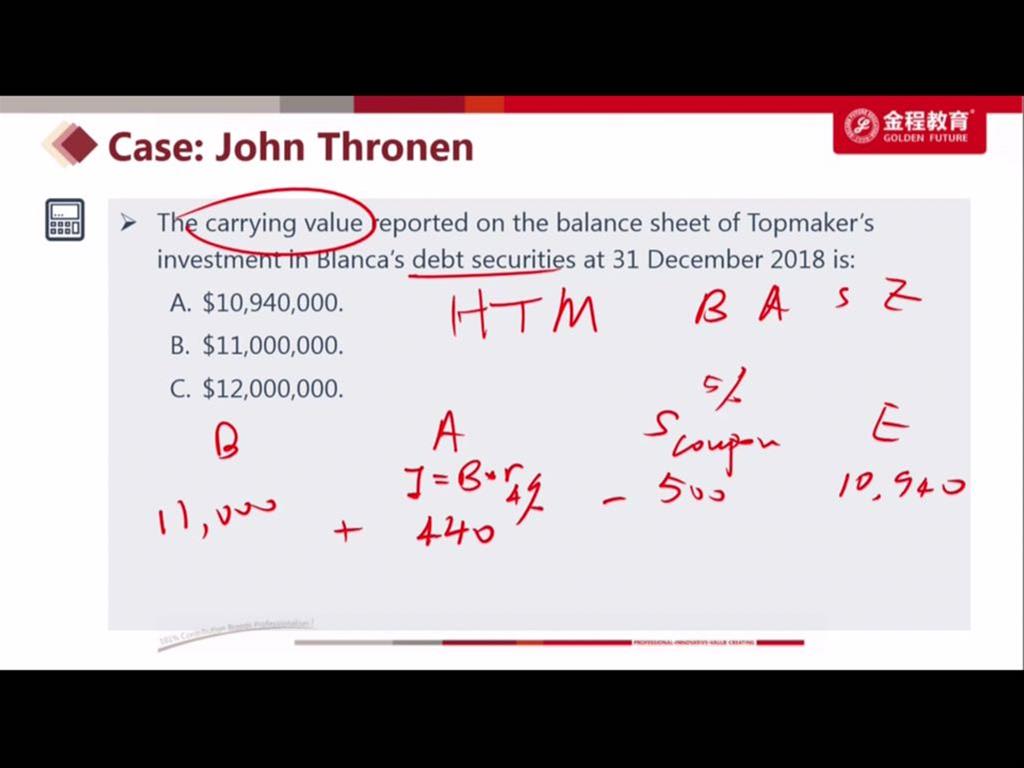 金程教育
GOLDEN FUTURE
Case: John Thronen
➢ The carrying value reported on the balance sheet of Topmaker's
investment in Blanca's debt securities at 31 December 2018 is:
A. $10,940,000.
B. $11,000,000.
C. $12,000,000.
HTM B A S E
5%
B A S coupon E
I = B * r 4%
11,000 + 440 - 500 10,940
101% Contribution Breeds Professionalism!
PROFESSIONAL·INNOVATIVE·VALUE CREATING